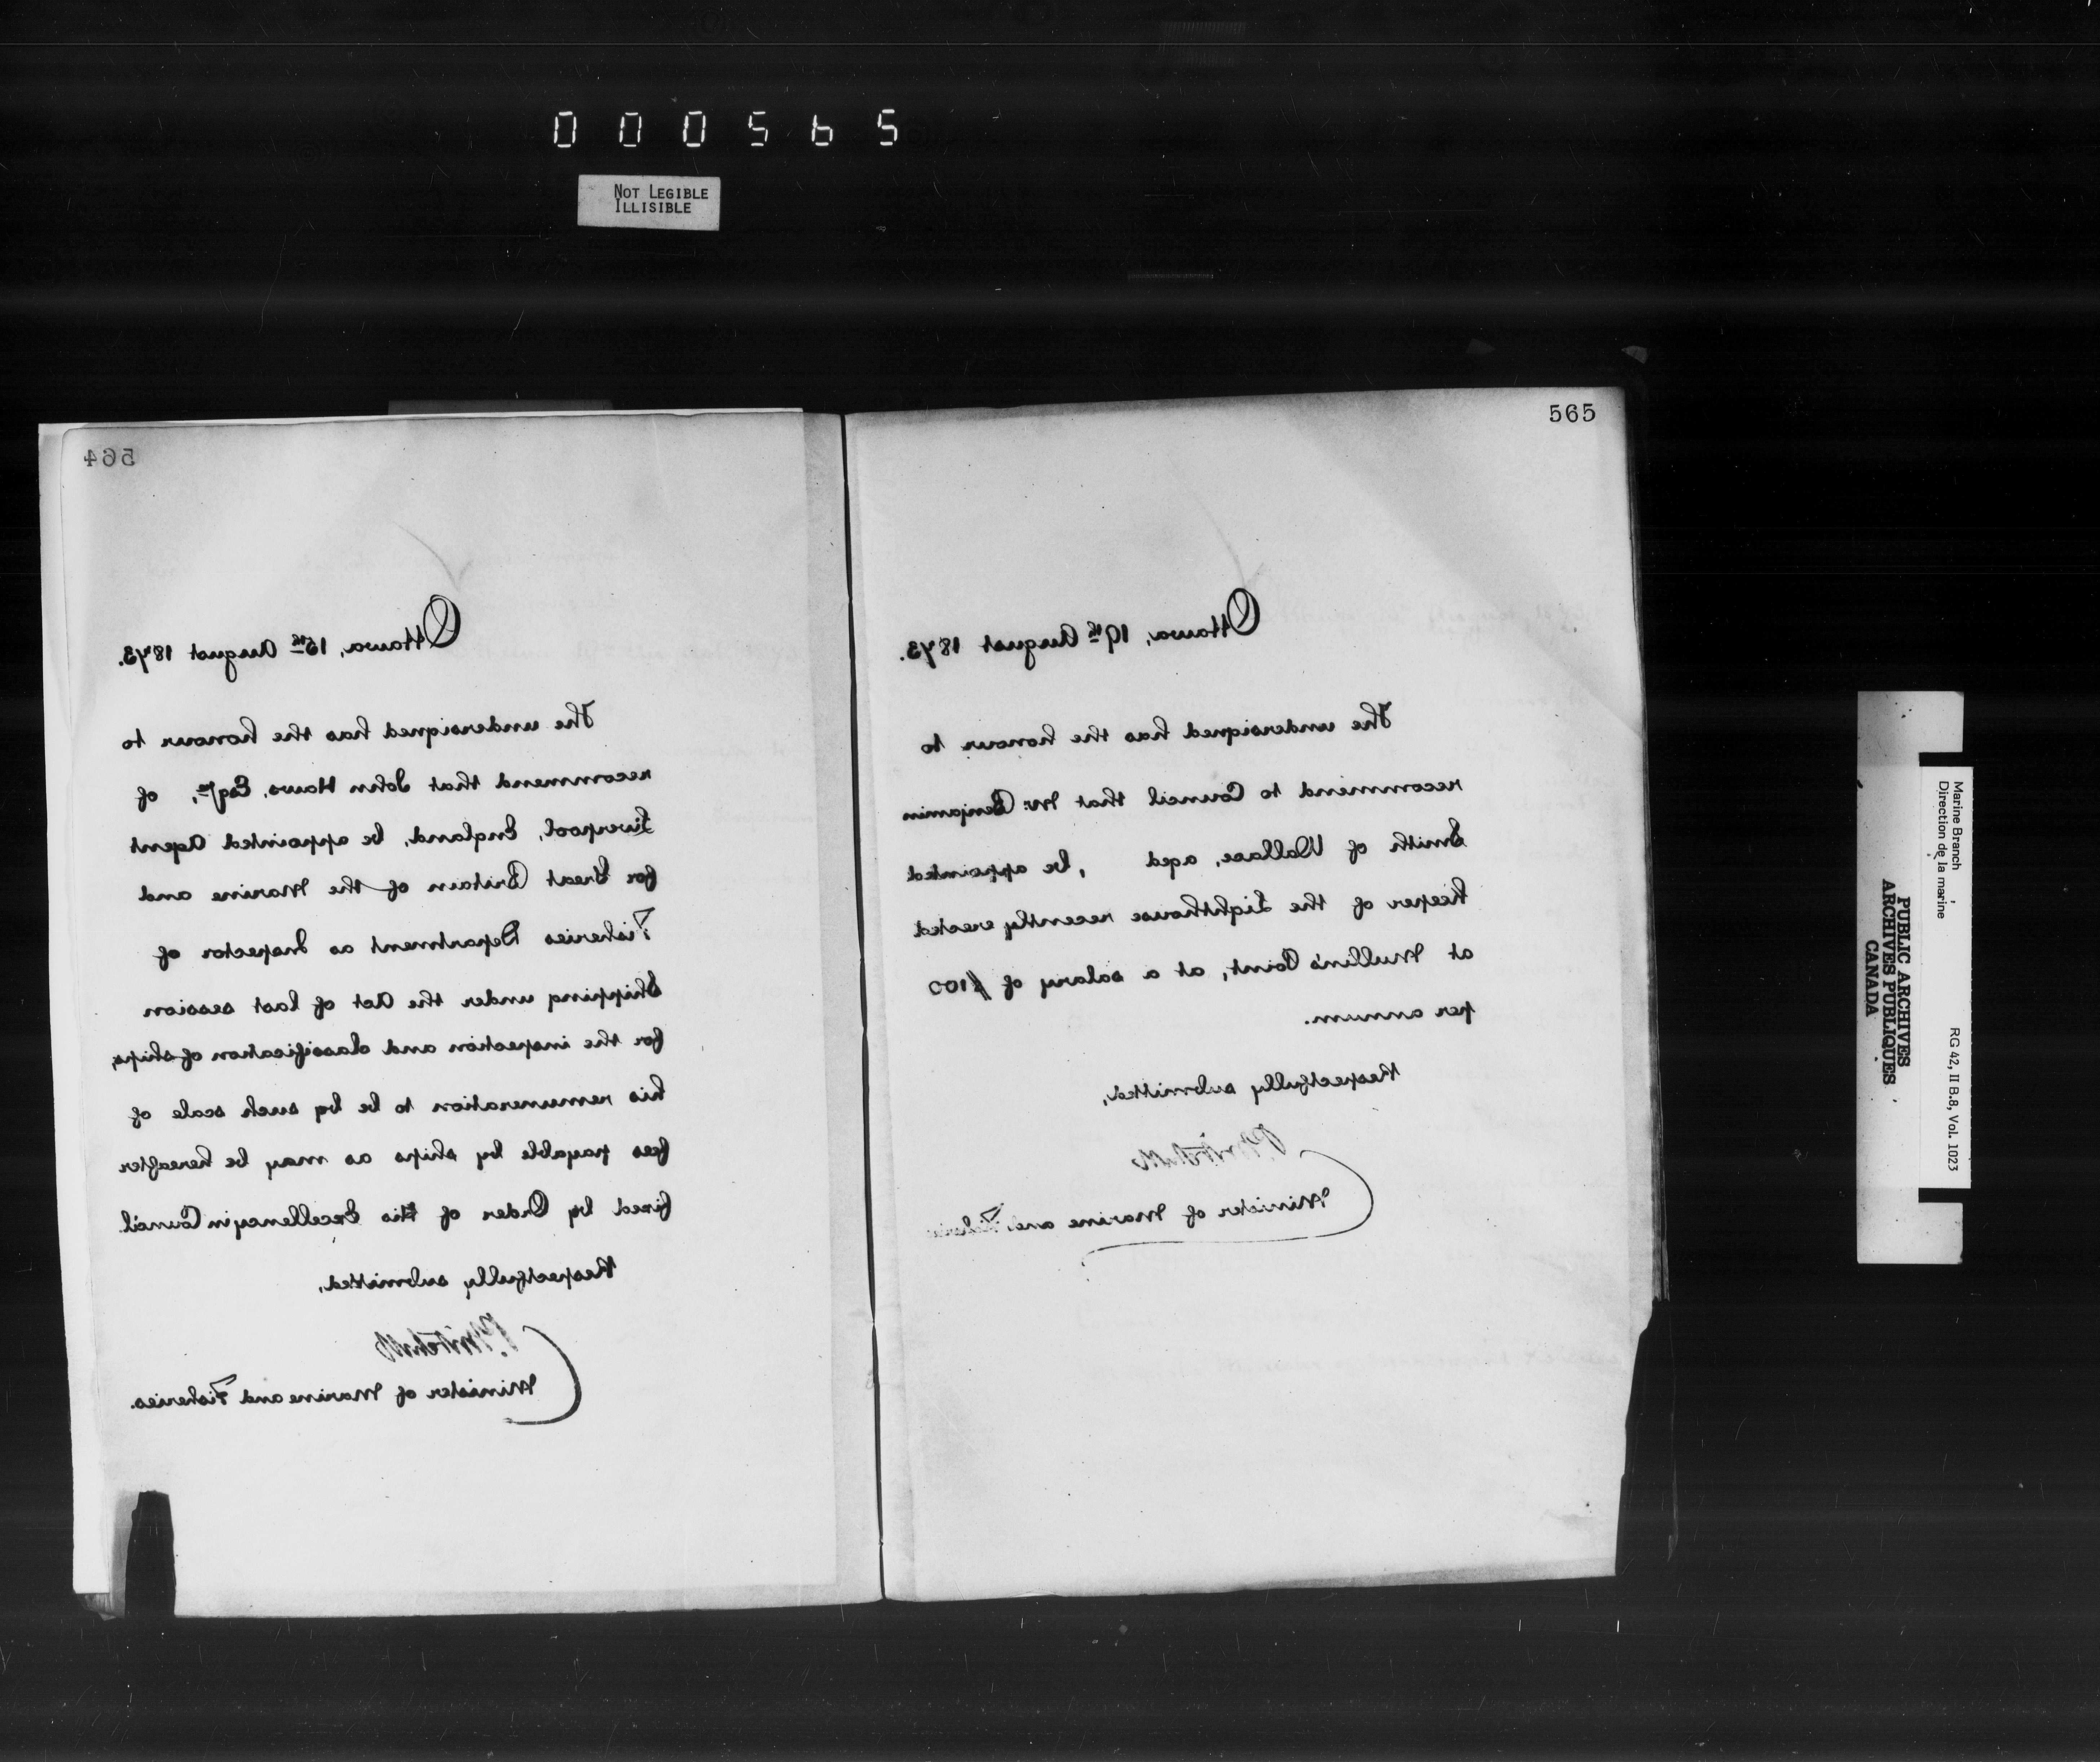 000565
NOT LEGIBLE
ILLISIBLE
564
Ottawa, 15th August 1873.
The undersigned has the honour to
recommend that John Haws, Esqre, of
Liverpool, England, be appointed Agent
for Great Britain of the Marine and
Fisheries Department as Inspector of
Shipping under the Act of last session
for the inspection and classification of ships,
his remuneration to be by such scale of
fees payable by ships as may be hereafter
fixed by Order of His Excellency in Council.
Respectfully submitted,
P. Mitchell
Minister of Marine and Fisheries.
565
Ottawa, 19th August 1873.
The undersigned has the honour to
recommend to Council that Mr. Benjamin
Smith of Wallace, aged , be appointed
Keeper of the Lighthouse recently erected
at Mullin's Point, at a salary of $100
per annum.
Respectfully submitted,
P. Mitchell
Minister of Marine and Fisheries
Marine Branch
Direction de la marine
RG 42, II B.8, Vol. 1023
PUBLIC ARCHIVES
ARCHIVES PUBLIQUES
CANADA